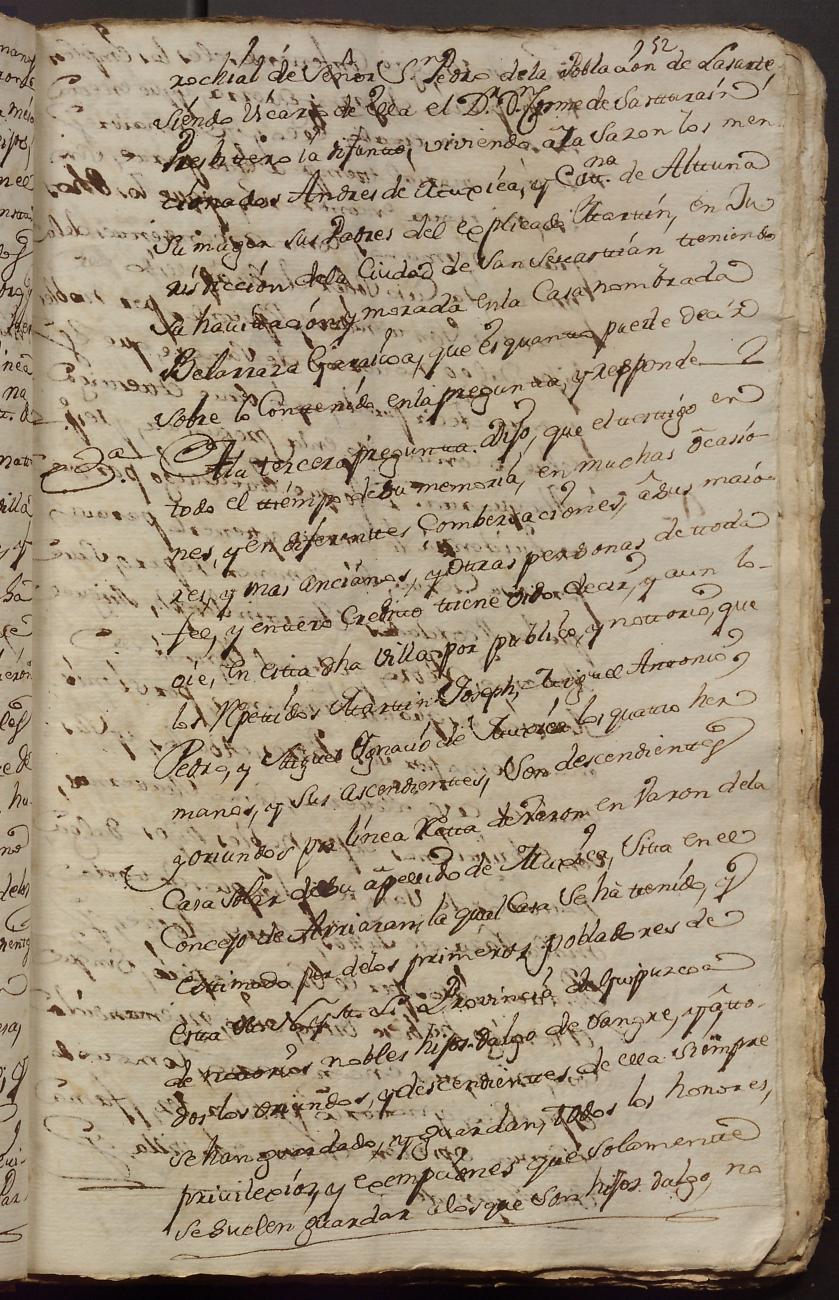 252
rochial de Señor S.n Pedro dela Poblacion de Lasarte,
siendo Vicario de ella el D.r D.n Jorme de Sasturain
Presbitero la difunto, viviendo ala Sazon los men
cionados Andres de Aruxiea, y Cat.na de Altuna
su muger sus Padres del explicado Martin, en Ju
risdiccion dela Ciudad de San Sevastian teniendo
su havitacion, y morada enla Casa nombrada
Belarraza Garaicoa, que es quanto puede decir
sobre lo Contenido enla pregunta, y responde
3.a Ala tercera pregunta Dijo, que el testigo en
todo el tiempo desu memoria, en muchas ocasio
nes, y en diferentes Combersaciones, asus maio
res, y mas ancianos, y otras personas de toda
fee, y entero Credito tiene oido decir, y aun lo
oie, en esta dha Villa por publico, y notorio, que
los Repetidos Martin Joseph, Miguel Antonio,
Pedro, y Miguel Ignacio de los quatro her
manos, y sus ascendientes, son descendientes
y oriundos por linea Recta de Varon en Varon dela
Casa Solar desu apellido de Sita en el
Concejo de Arriaran, la qual Casa se ha tenido, y
estimado por delos primeros Pobladores de
esta Provincia de Guipuzcoa
de notorios nobles hijos dalgo de sangre, y a to
dos los oriundos, y descendientes de ella siempre
se han guardado, y guardan, todos los honores,
privilexios, y exempciones que solamente
se suelen guardar alos que son hijos dalgo, no